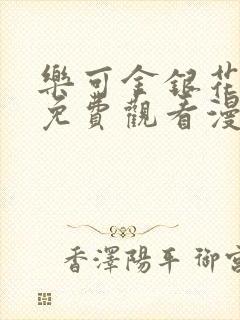 樂可金銀花
免費觀看漫
香澤陽平 御宮